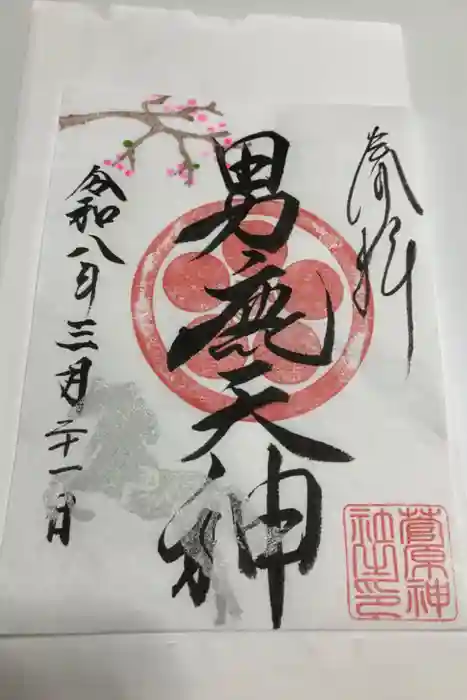 奉拝
男鹿天神
令和八年三月二十一日
菅原神
社之印